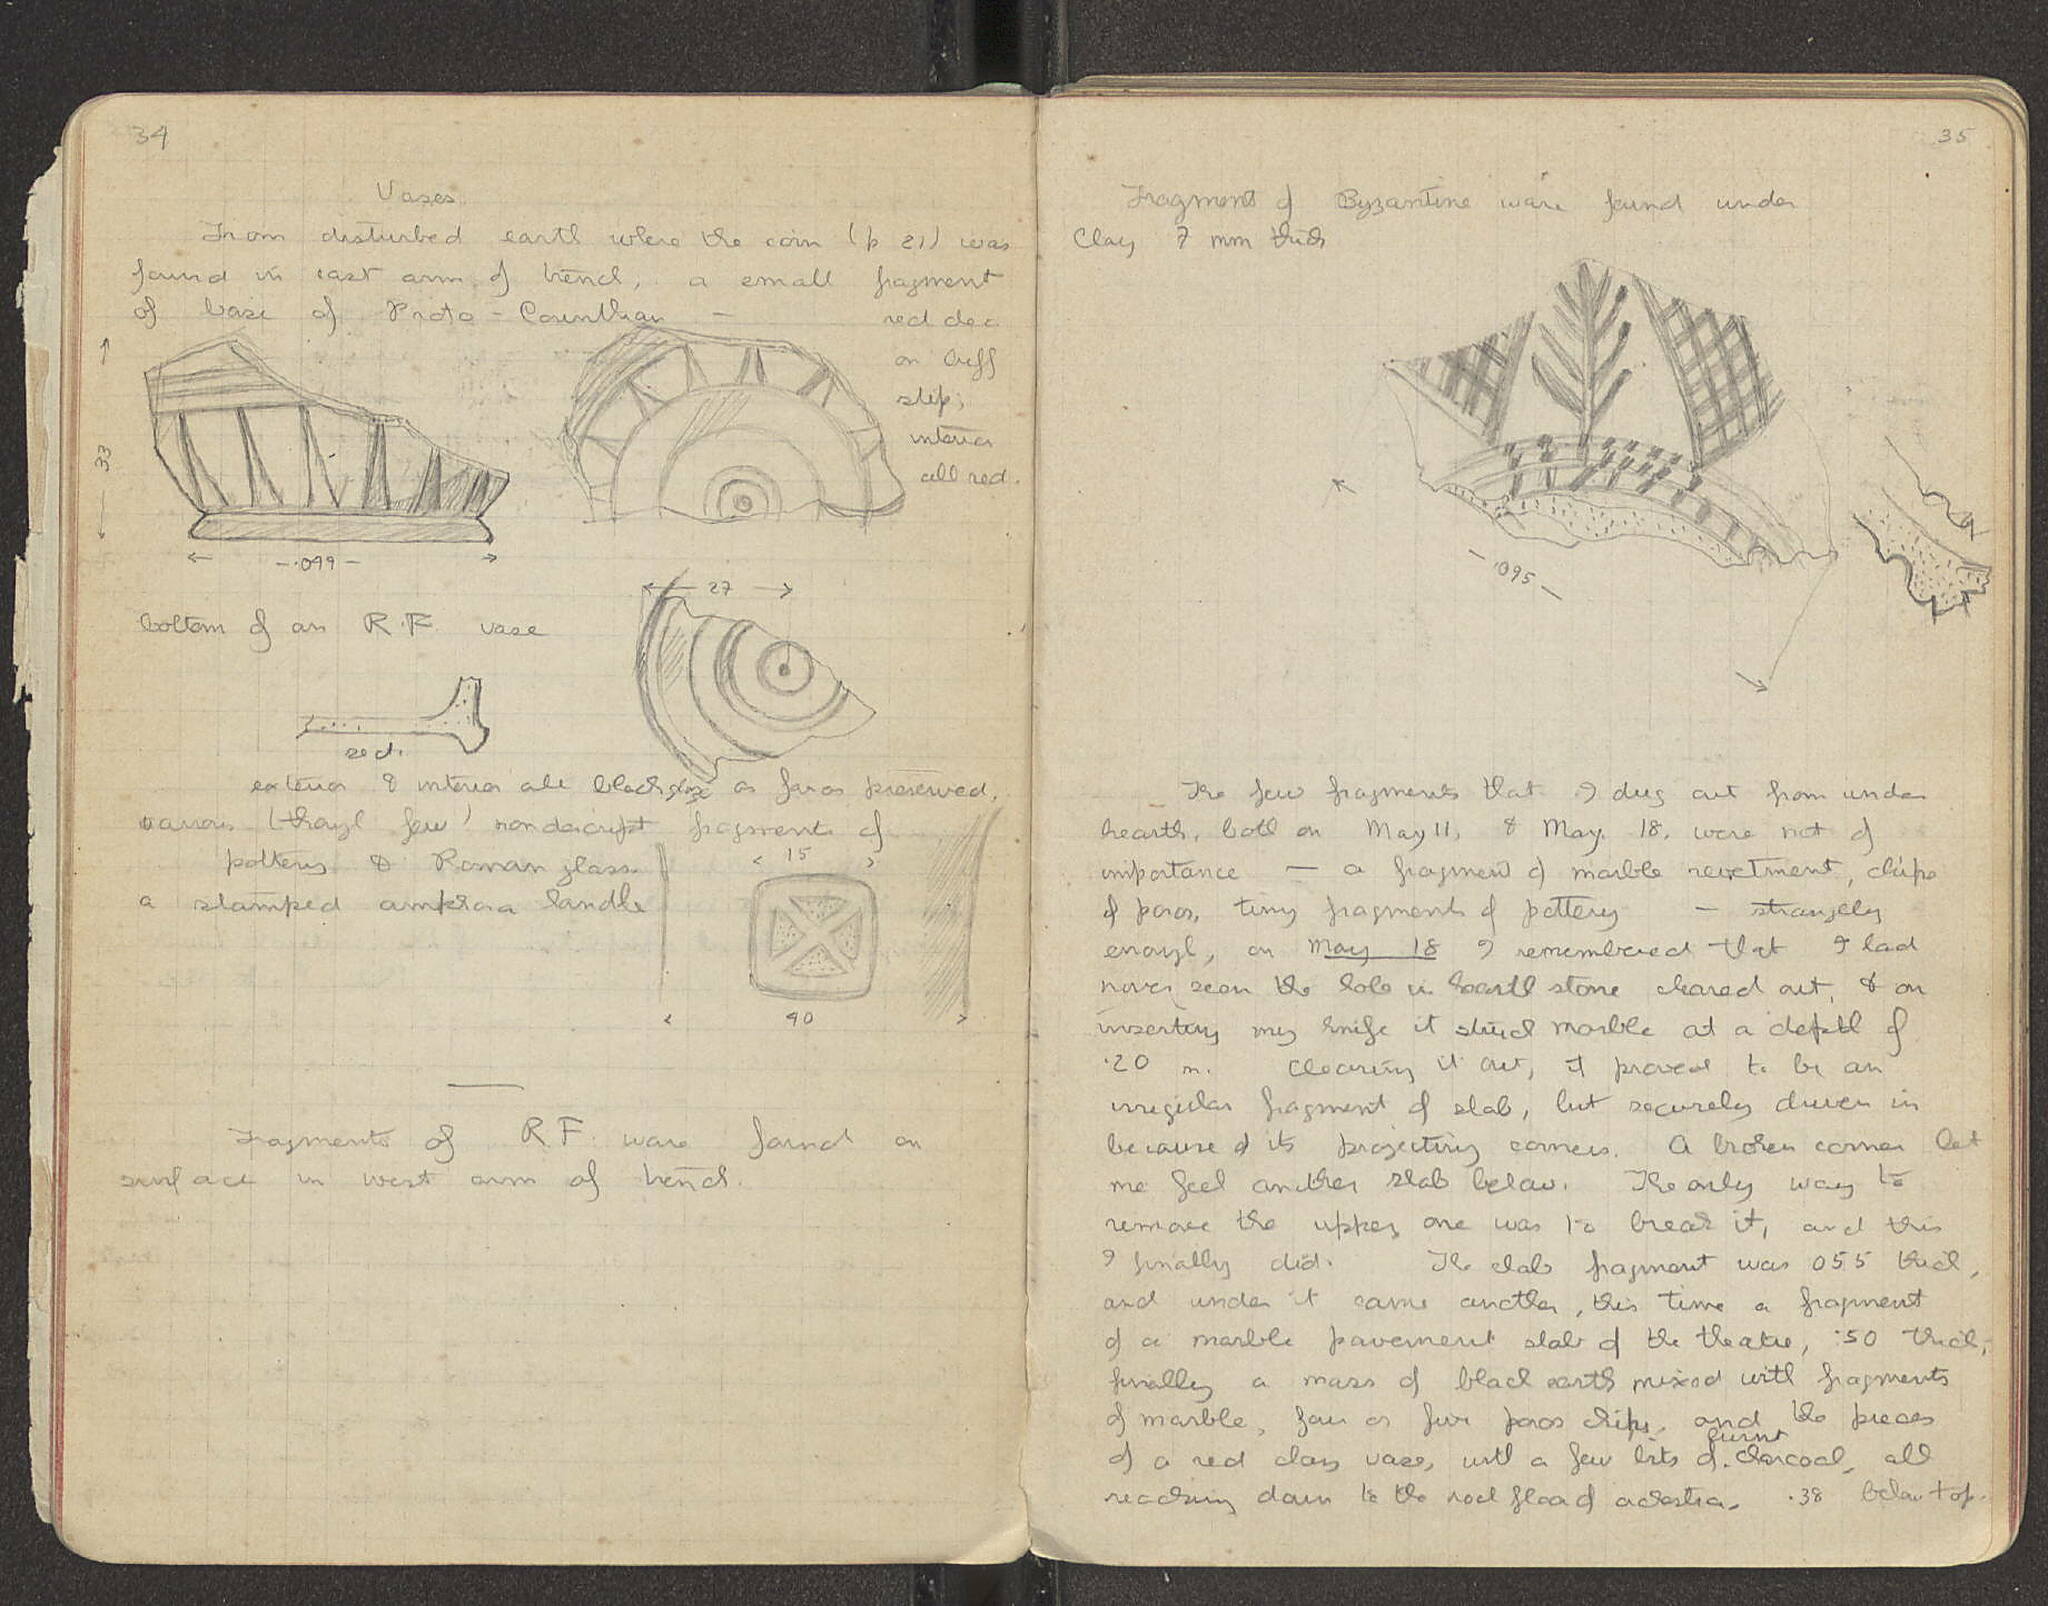 34
Vases
From disturbed earth where the coin (p 21) was
found in east arm of trench, a small fragment
of base of Proto-Corinthian –
red dec.
on buff
slip;
interior
all red.
33
-.099-
27
bottom of an R.F. vase
red.
exterior & interior all black glaze as far as preserved.
various (though few) nondescript fragments of
pottery & Roman glass.
a stamped amphora handle
15
90
Fragments of RF. ware found on
surface in west arm of trench.
35
Fragment of Byzantine ware found under
Clay 7 mm thick
-.095-
The few fragments that I dug out from under
hearth, both on May 11, & May. 18, were not of
importance — a fragment of marble revetment, chips
of poros, tiny fragments of pottery – strangely
enough, on May 18 I remembered that I had
never seen the hole in hearth stone cleared out, & on
inserting my knife it struck marble at a depth of
.20 m. Clearing it out, it proved to be an
irregular fragment of slab, but securely driven in
because of its projecting corners. A broken corner let
me feel another slab below. The only way to
remove the upper one was to break it, and this
I finally did. The slab fragment was 055 thick,
and under it came another, this time a fragment
of a marble pavement slab of the theatre, .50 thick;
finally a mass of black earth mixed with fragments
of marble, four or five poros chips, and the pieces
of a red clay vase, with a few bits of burnt charcoal, all
reaching down to the rock floor of orchestra. .38 below top.